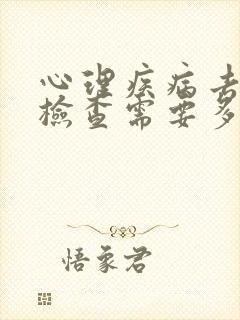 心理疾病去
檢查需要多
悟象君